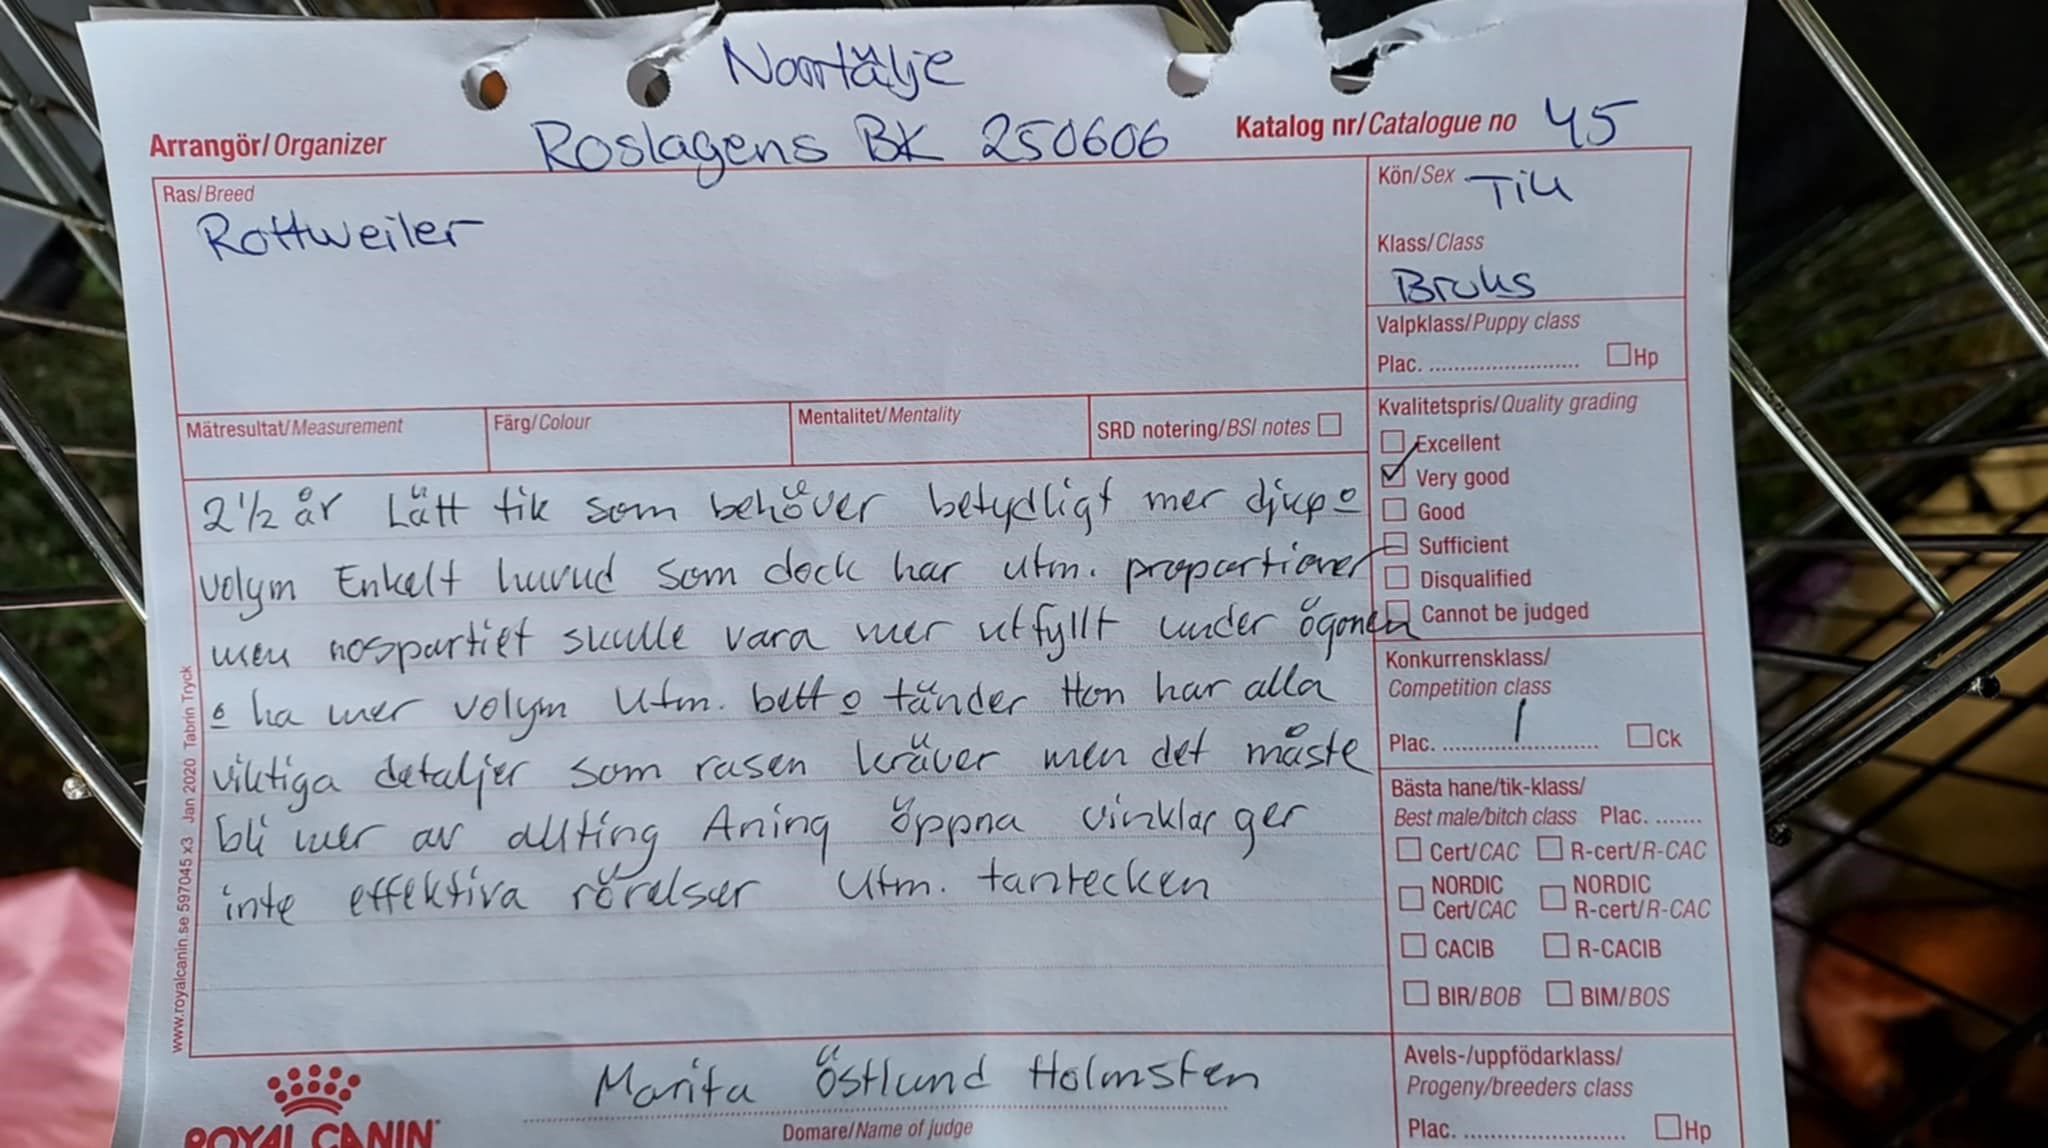 Norrtälje
Arrangör/Organizer Roslagens BK 250606 Katalog nr/Catalogue no 45
Ras/Breed
Rottweiler
Kön/Sex Tik
Klass/Class
Bruks
Valpklass/Puppy class
Plac. ........................ ☐Hp
Mätresultat/Measurement Färg/Colour Mentalitet/Mentality SRD notering/BSI notes ☐
Kvalitetspris/Quality grading
☐ Excellent
☑ Very good
☐ Good
☐ Sufficient
☐ Disqualified
☐ Cannot be judged
2 1/2 år Lätt tik som behöver betydligt mer djup o
volym Enkelt huvud som dock har utm. proportioner
men nospartiet skulle vara mer utfyllt under ögonen
o ha mer volym Utm. bett o tänder Hon har alla
viktiga detaljer som rasen kräver men det måste
bli mer av allting Aning öppna vinklar ger
inte effektiva rörelser Utm. tantecken
Konkurrensklass/
Competition class
Plac. ........1........ ☐Ck
Bästa hane/tik-klass/
Best male/bitch class Plac. .......
☐ Cert/CAC ☐ R-cert/R-CAC
☐ NORDIC Cert/CAC ☐ NORDIC R-cert/R-CAC
☐ CACIB ☐ R-CACIB
☐ BIR/BOB ☐ BIM/BOS
Avels-/uppfödarklass/
Progeny/breeders class
Plac. ........................ ☐Hp
www.royalcanin.se 597045 x3 Jan 2020 Tabrin Tryck
ROYAL CANIN
Marita Östlund Holmsten
Domare/Name of judge